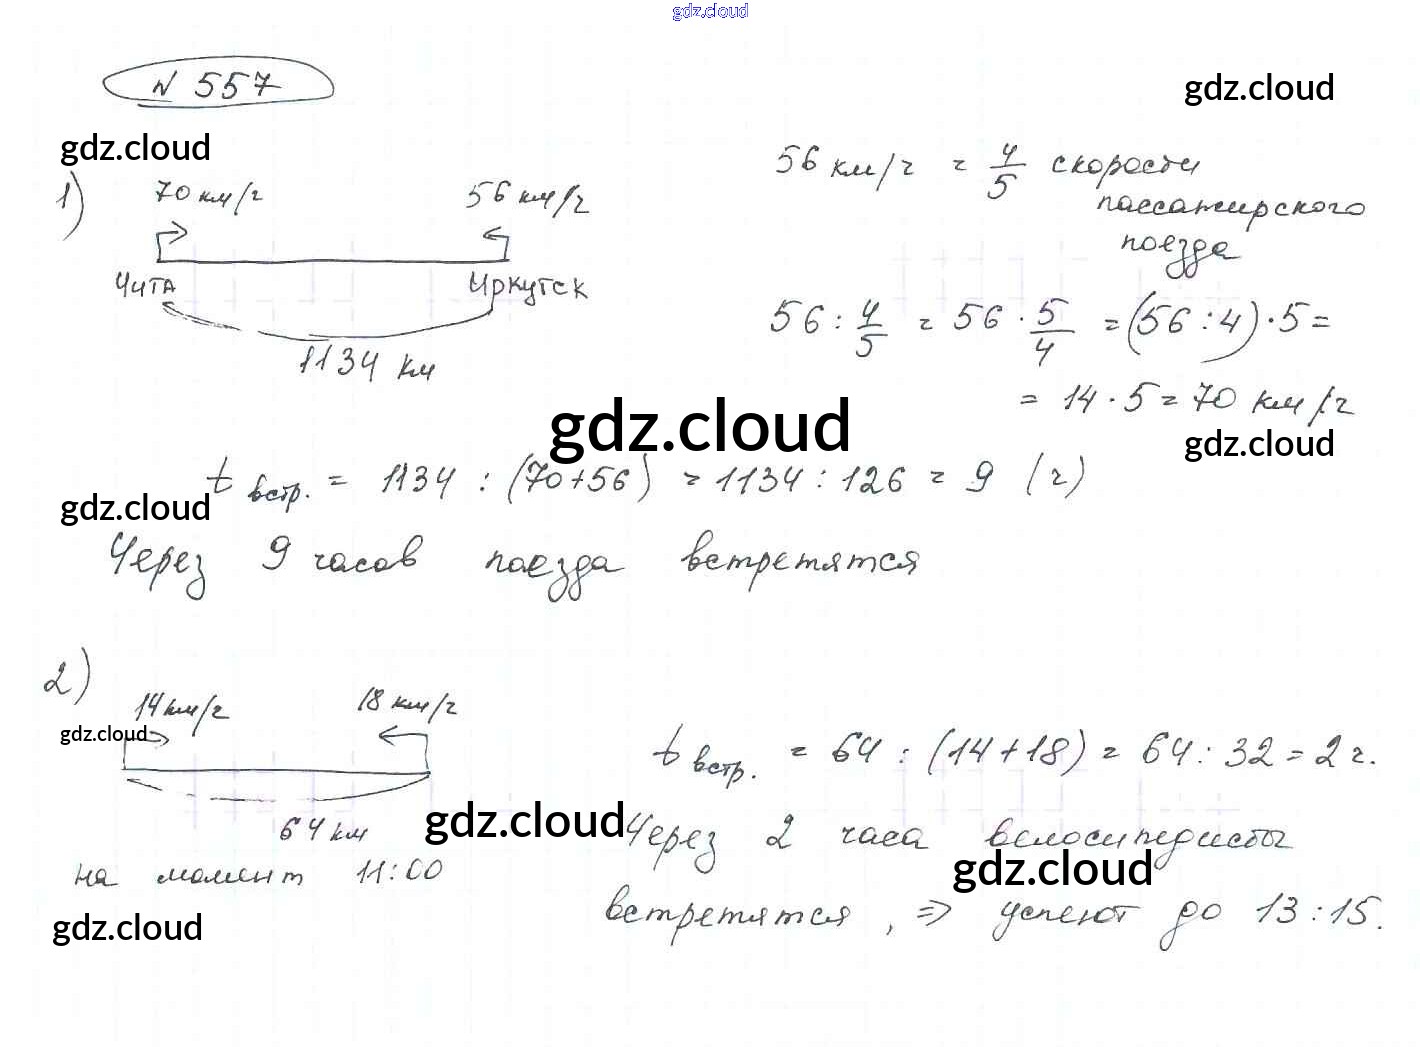 gdz.cloud
N 557
gdz.cloud
gdz.cloud
1)
70 км/ч
56 км/ч
Чита
Иркутск
1134 км
56 км/ч = 4/5 скорости
пассажирского
поезда
56 : 4/5 = 56 · 5/4 = (56 : 4) · 5 =
= 14 · 5 = 70 км/ч
gdz.cloud
gdz.cloud
t встр. = 1134 : (70+56) = 1134 : 126 = 9 (ч)
gdz.cloud
Через 9 часов поезда встретятся
2)
14 км/ч
18 км/ч
gdz.cloud
64 км
на момент 11:00
t встр. = 64 : (14+18) = 64 : 32 = 2 ч.
gdz.cloud
Через 2 часа велосипедисты
gdz.cloud
встретятся, ⇒ успеют до 13:15.
gdz.cloud